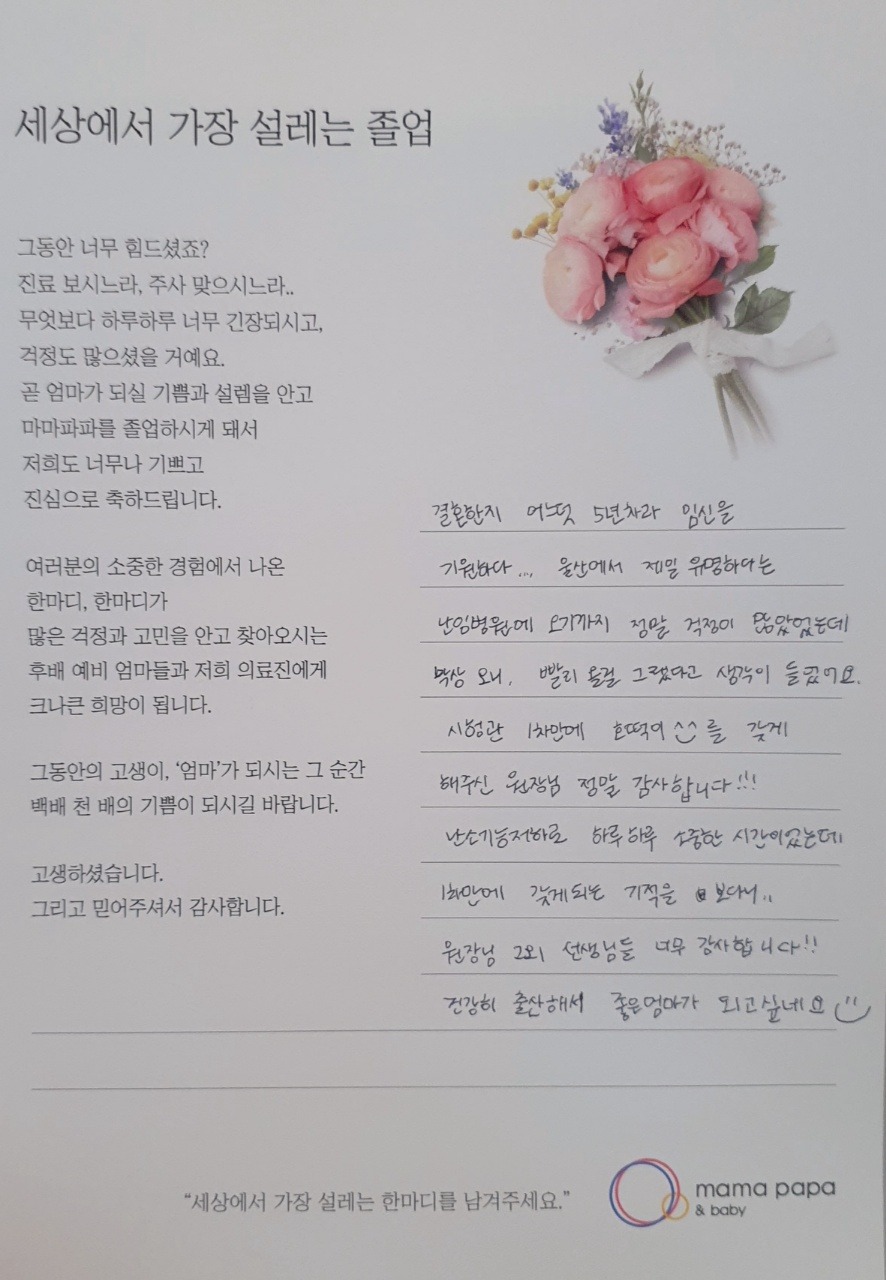 세상에서 가장 설레는 졸업
그동안 너무 힘드셨죠?
진료 보시느라, 주사 맞으시느라..
무엇보다 하루하루 너무 긴장되시고,
걱정도 많으셨을 거예요.
곧 엄마가 되실 기쁨과 설렘을 안고
마마파파를 졸업하시게 돼서
저희도 너무나 기쁘고
진심으로 축하드립니다.
여러분의 소중한 경험에서 나온
한마디, 한마디가
많은 걱정과 고민을 안고 찾아오시는
후배 예비 엄마들과 저희 의료진에게
크나큰 희망이 됩니다.
그동안의 고생이, ‘엄마’가 되시는 그 순간
백배 천 배의 기쁨이 되시길 바랍니다.
고생하셨습니다.
그리고 믿어주셔서 감사합니다.
결혼한지 어느덧 5년차라 임신을
기원하다... 울산에서 제일 유명하다는
난임병원에 오기까지 정말 걱정이 많았었는데
막상 오니, 빨리 올걸 그랬다고 생각이 들었어요.
시험관 1차만에 호떡이^^를 갖게
해주신 원장님 정말 감사합니다!!!
난소기능저하로 하루하루 소중한 시간이었는데
1차만에 갖게되는 기적을 보다니..
원장님 그외 선생님들 너무 감사합니다!!
건강히 출산해서 좋은엄마가 되고싶네요
“세상에서 가장 설레는 한마디를 남겨주세요.”
mama papa
& baby